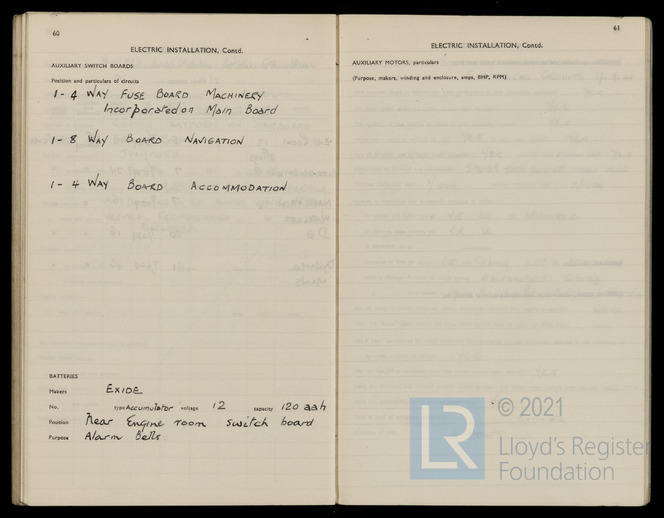 60
ELECTRIC INSTALLATION, Contd.
AUXILIARY SWITCH BOARDS
Position and particulars of circuits
1 - 4 WAY FUSE BOARD MACHINERY
Incorporated on Main Board
1 - 8 WAY BOARD NAVIGATION
1 - 4 WAY BOARD ACCOMMODATION
BATTERIES
Makers EXIDE
No. type Accumulator voltage 12 capacity 120 aah
Position Near Engine room switch board
Purpose Alarm Bells.
61
ELECTRIC INSTALLATION, Contd.
AUXILIARY MOTORS, particulars
(Purpose, makers, winding and enclosure, amps, BHP, RPM)
LR
© 2021
Lloyd's Register
Foundation